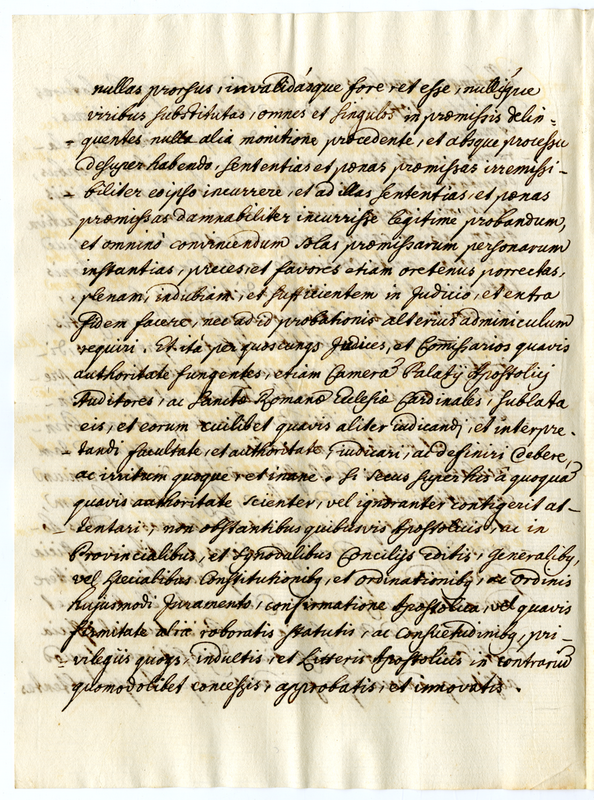 nullas prorsus, invalidasque fore, et esse, nullisque
viribus substitutas, omnes et singulos in præmissis delin=
quentes nulla alia monitione præcedente, et absque processu
desuper habendo, sententias et pœnas præmissas irremissi-
biliter eoipso incurrere, et ad illas sententias, et pœnas
præmissas damnabiliter incurrisse legitimé probandum,
et omninó conviniendum solas præmissarum personarum
instantias, preces, et favores etiam oretenus porrectas,
plenam, indubiam, et sufficientem in Judicio, et extra
fidem facere, nec ad id probationis alterius adminiculum
requiri. Et ita per quoscunqs Judices, et Comissarios quavis
authoritate fungentes, etiam Cameræ Palatij Apostolicj
Auditores, ac Sanctæ Romanæ Eclesiæ Cardinales, sublata
eis, et eorum cuilibet quavis aliter iudicandj, et interpre-
tandi facultate, et authoritate iudicari, ac definiri debere,
ac irritum quoque, et inane. Si secus super his á quoquã
quavis authoritate scienter, vel ignoranter contigerit at-
tentari, non obstantibus quibusvis Apostolicis, ac in
Provincialibus, et Synodalibus Concilijs editis, Generalibq,
vel specialibus Constitutionibq, et ordinationibq, ac Ordinis
hujusmodi Juramento, confirmatione Apostolica, vel quavis
firmitate alia roboratis statutis, ac consuetudinibq, pri-
vilegiis quoqs, indultis, et Litteris Apostolicis in contrariũ
quomodolibet concessis, approbatis, et innovatis.